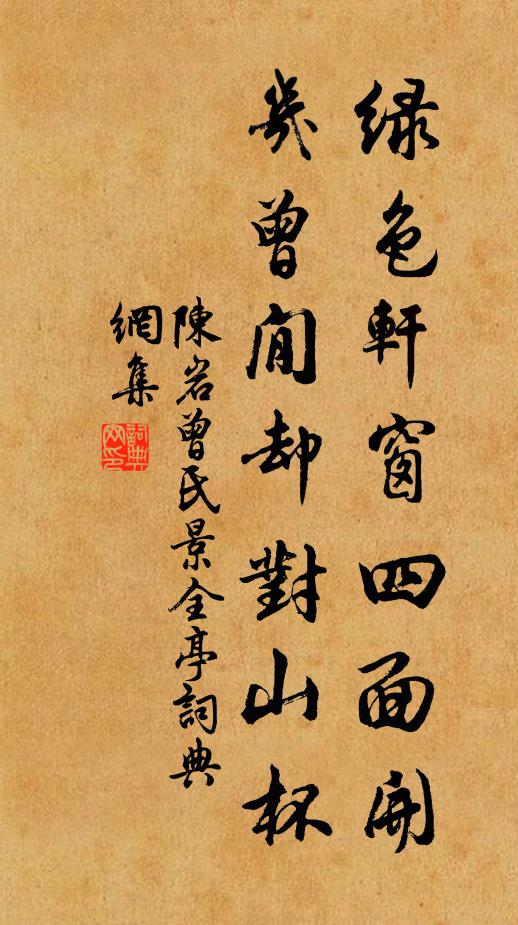 緑色軒窗四面開
幾曾閒却對山杯
陳岩曾氏景全亭詞典
網集
詞典
网印